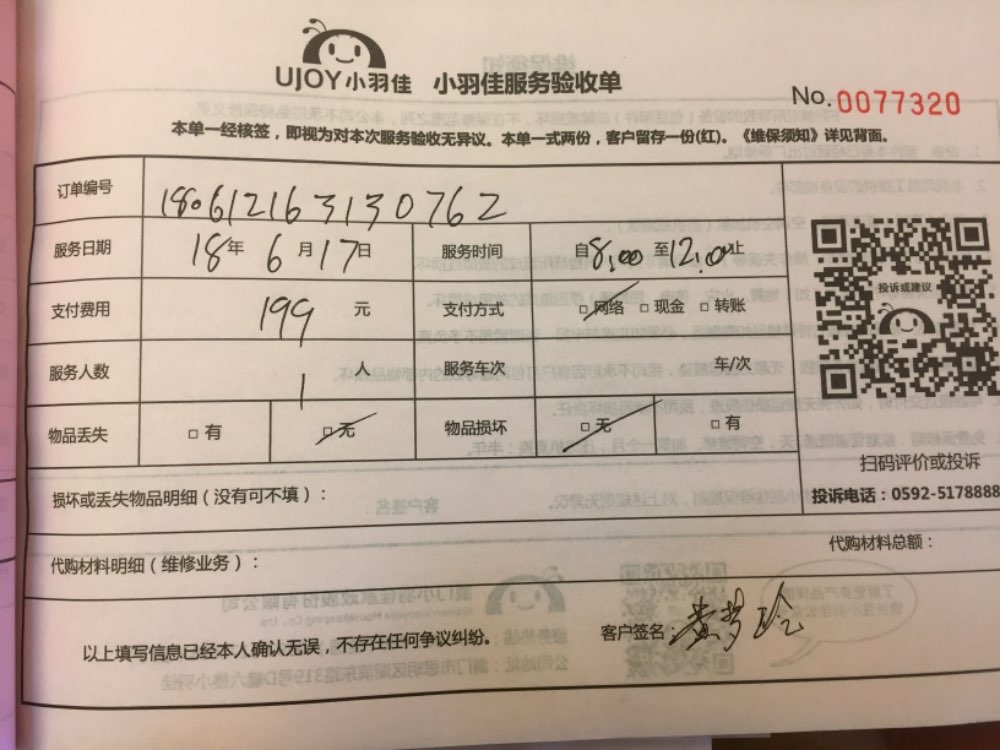 UJOY小羽佳 小羽佳服务验收单
No.0077320
本单一经核签，即视为对本次服务验收无异议。本单一式两份，客户留存一份(红)。《维保须知》详见背面。
订单编号 180612163130762
服务日期 18年 6月17日 服务时间 自8:00至12:00止
支付费用 199 元 支付方式 □网络 □现金 □转账
服务人数 1人 服务车次 车/次
物品丢失 □有 □无 物品损坏 □无 □有
投诉或建议
扫码评价或投诉
投诉电话：0592-5178888
损坏或丢失物品明细（没有可不填）：
代购材料明细（维修业务）： 代购材料总额：
以上填写信息已经本人确认无误，不存在任何争议纠纷。 客户签名：